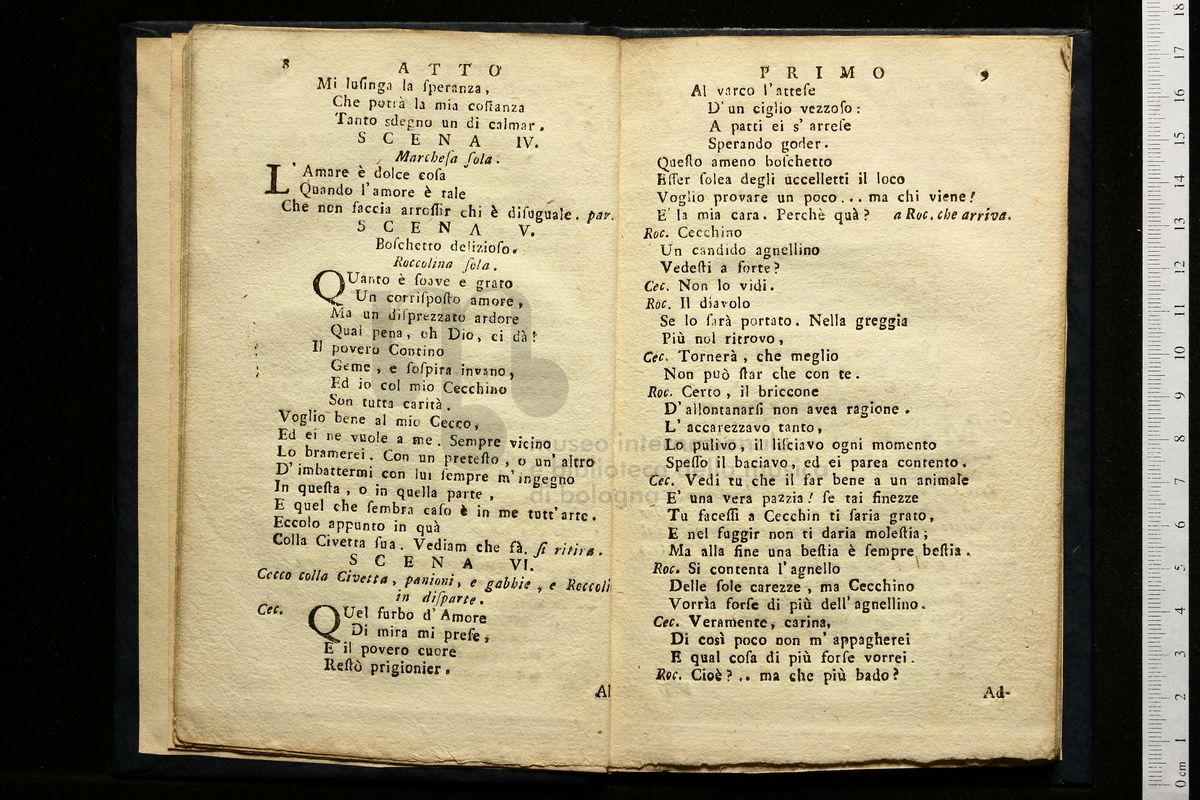 8
A T T O
Mi luſinga la ſperanza,
Che potrà la mia coſtanza
Tanto sdegno un di calmar.
S C E N A IV.
Marcheſa ſola.
L'Amare è dolce coſa
Quando l'amore è tale
Che non faccia arroſſir chi è diſuguale. par.
S C E N A V.
Boſchetto delizioſo.
Roccolina ſola.
QUanto è ſoave e grato
Un corriſpoſto amore,
Ma un diſprezzato ardore
Qual pena, oh Dio, ci dà!
Il povero Contino
Geme, e ſoſpira invano,
Ed io col mio Cecchino
Son tutta carità.
Voglio bene al mio Cecco,
Ed ei ne vuole a me. Sempre vicino
Lo bramerei. Con un preteſto, o un'altro
D'imbattermi con lui ſempre m'ingegno
In queſta, o in quella parte,
E quel che ſembra caſo è in me tutt'arte.
Eccolo appunto in quà
Colla Civetta ſua. Vediam che fà. ſi ritira.
S C E N A VI.
Cecco colla Civetta, panioni, e gabbie, e Roccoli
in diſparte.
Cec. QUel furbo d'Amore
Di mira mi preſe,
E il povero cuore
Reſtò prigionier.
Al
P R I M O
9
Al varco l'atteſe
D'un ciglio vezzoſo:
A patti ei s'arreſe
Sperando goder.
Queſto ameno boſchetto
Eſſer ſolea degli uccelletti il loco
Voglio provare un poco... ma chi viene!
E' la mia cara. Perchè quà? a Roc. che arriva.
Roc. Cecchino
Un candido agnellino
Vedeſti a forte?
Cec. Non lo vidi.
Roc. Il diavolo
Se lo ſarà portato. Nella greggia
Più nol ritrovo,
Cec. Tornerà, che meglio
Non può ſtar che con te.
Roc. Certo, il briccone
D'allontanarſi non avea ragione.
L'accarezzavo tanto,
Lo pulivo, il liſciavo ogni momento
Speſſo il baciavo, ed ei parea contento.
Cec. Vedi tu che il far bene a un animale
E' una vera pazzia! ſe tai finezze
Tu faceſſi a Cecchin ti ſaria grato,
E nel fuggir non ti daria moleſtia;
Ma alla fine una beſtia è ſempre beſtia.
Roc. Si contenta l'agnello
Delle ſole carezze, ma Cecchino
Vorrìa forſe di più dell'agnellino.
Cec. Veramente, carina,
Di così poco non m'appagherei
E qual coſa di più forſe vorrei.
Roc. Cioè?.. ma che più bado?
Ad-
museo internazionale
e biblioteca della musica
di bologna
0 cm 1 2 3 4 5 6 7 8 9 10 11 12 13 14 15 16 17 18